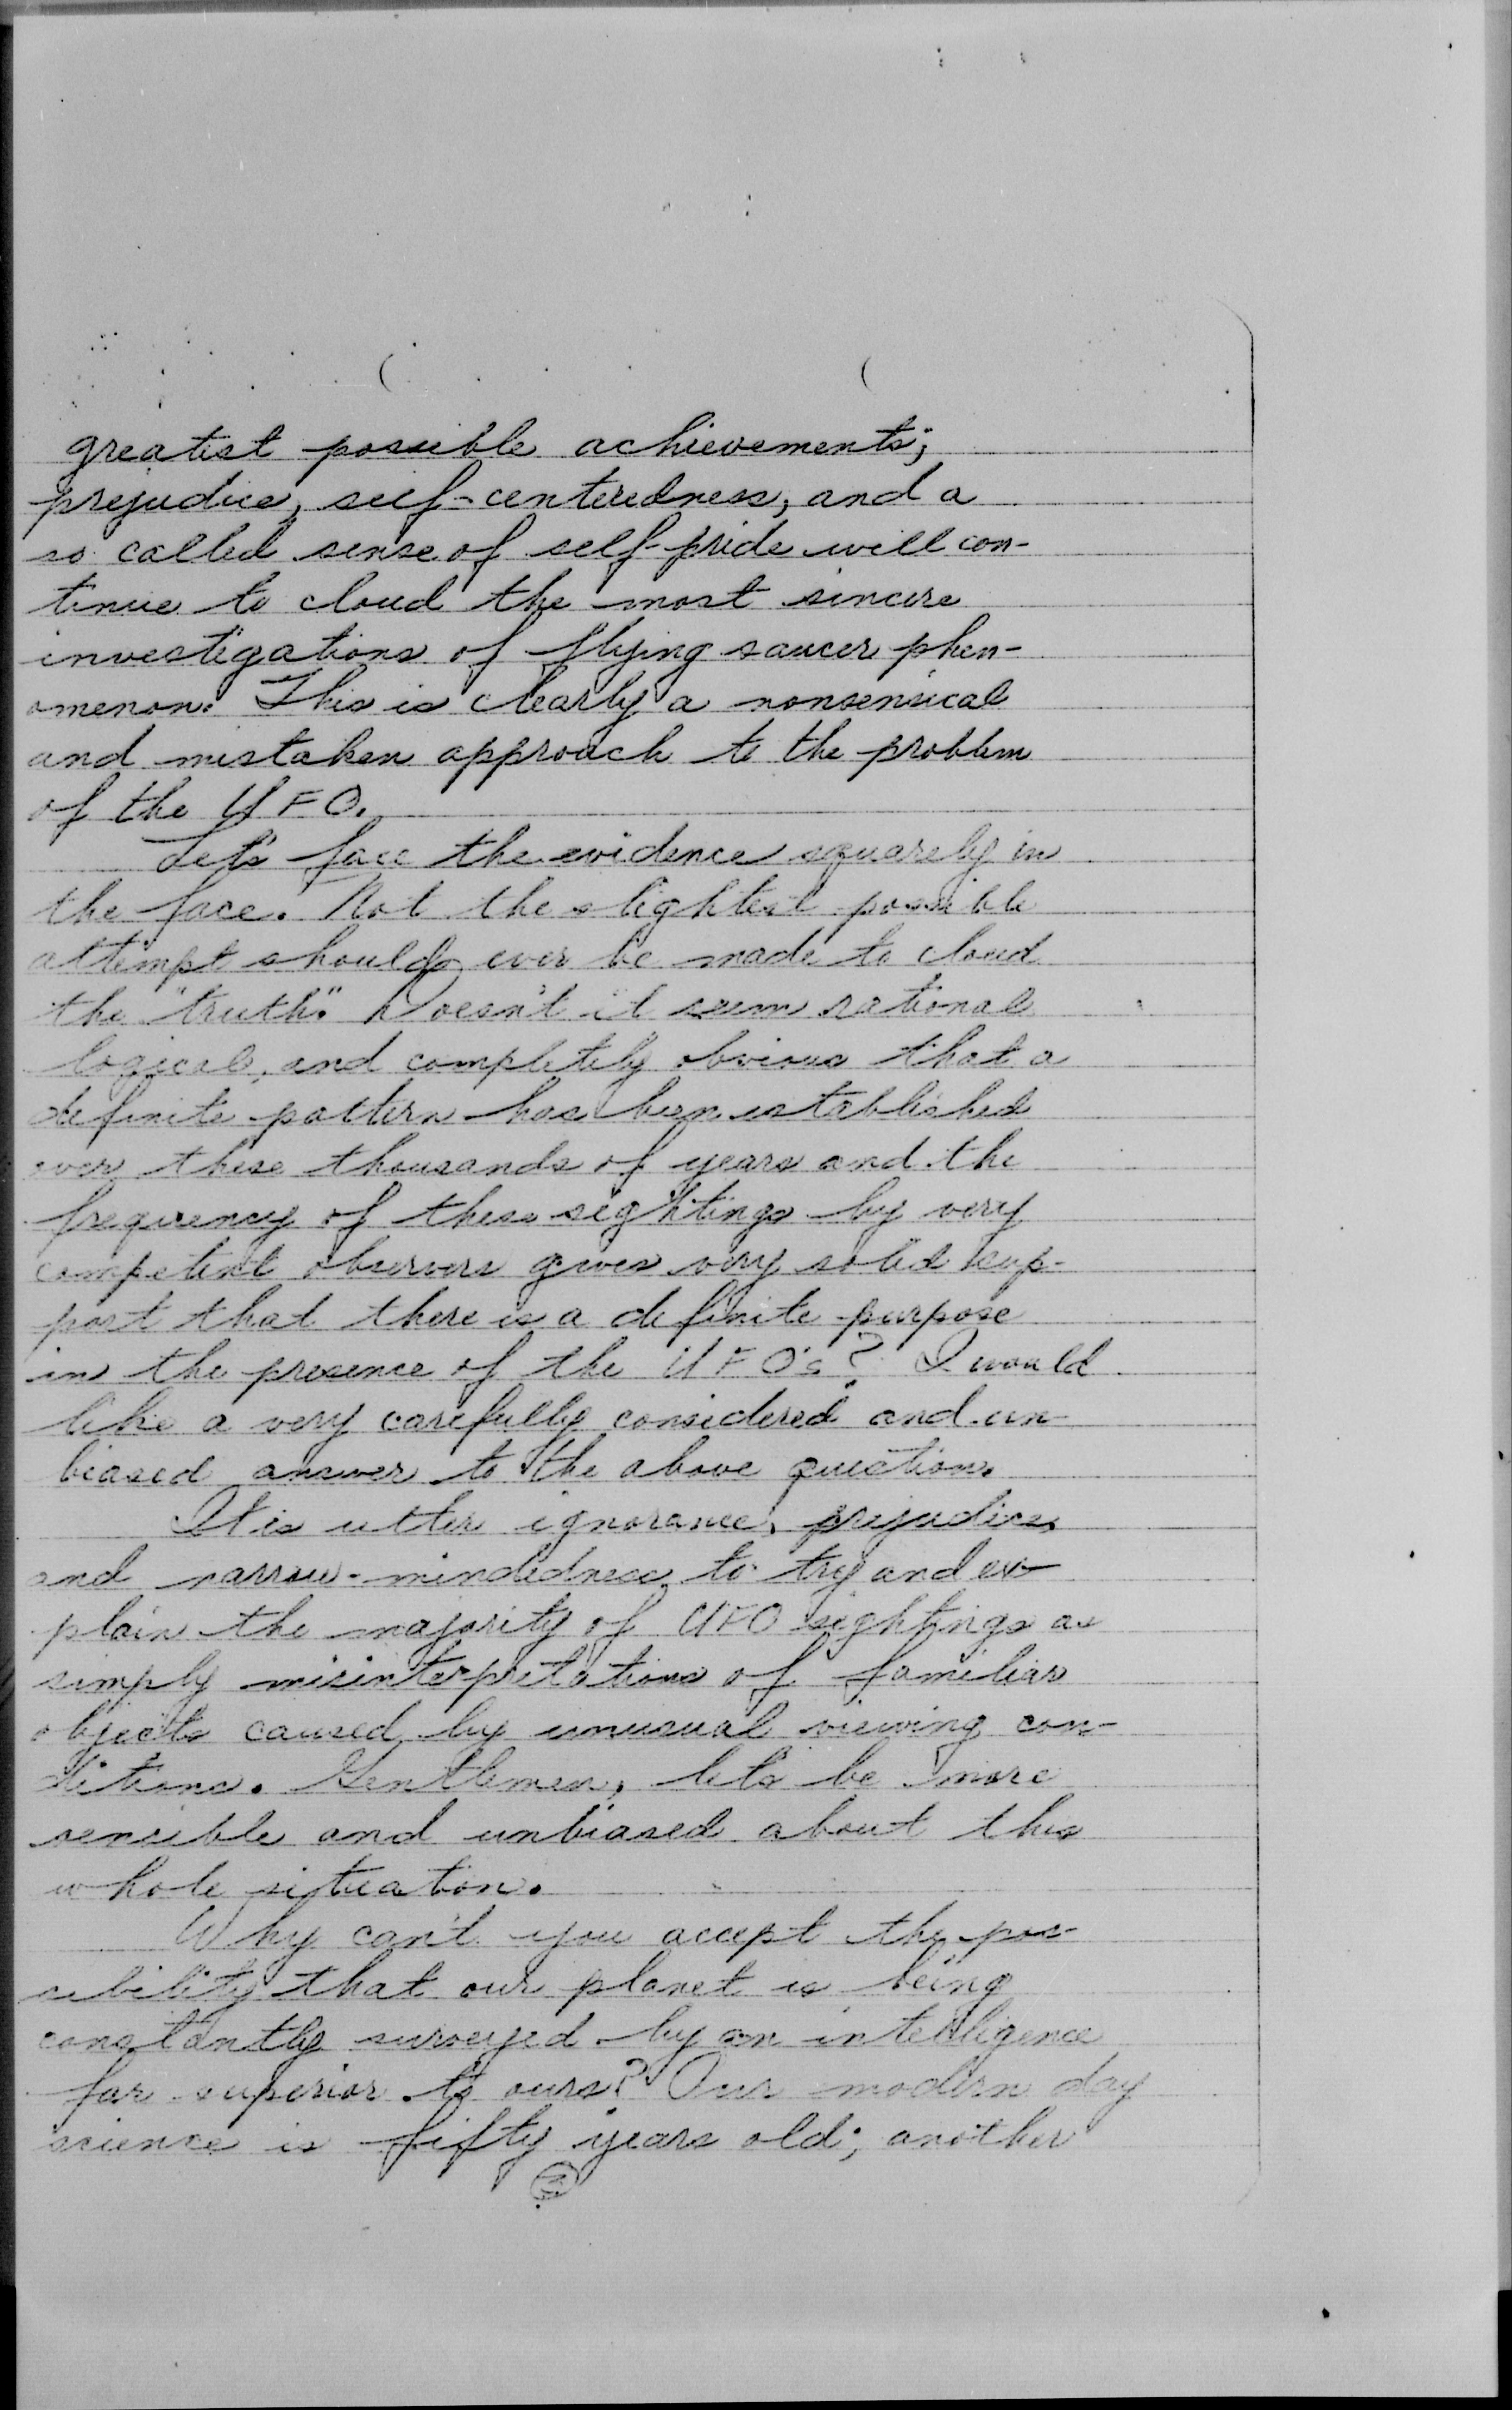 greatest possible achievements;
prejudice, self-centeredness, and a
so called sense of self-pride will con-
tinue to cloud the most sincere
investigations of flying saucer phen-
omenon. This is clearly a nonsensical
and mistaken approach to the problem
of the UFO.
Let's face the evidence squarely in
the face. Not the slightest possible
attempt should ever be made to cloud
the "truth." Doesn't it seem rational
logical, and completely obvious that a
definite pattern has been established
over these thousands of years and the
frequency of these sightings by very
competent observers gives very solid sup-
port that there is a definite purpose
in the presence of the UFO's? I would
like a very carefully considered and un-
biased answer to the above question.
It is utter ignorance, prejudice,
and narrow-mindedness to try and ex-
plain the majority of UFO sightings as
simply misinterpretations of familiar
objects caused by unusual viewing con-
ditions. Gentlemen, let's be more
sensible and unbiased about this
whole situation.
Why can't you accept the pos-
sibility that our planet is being
constantly surveyed by an intelligence
far superior to ours? Our modern day
science is fifty years old; another
3